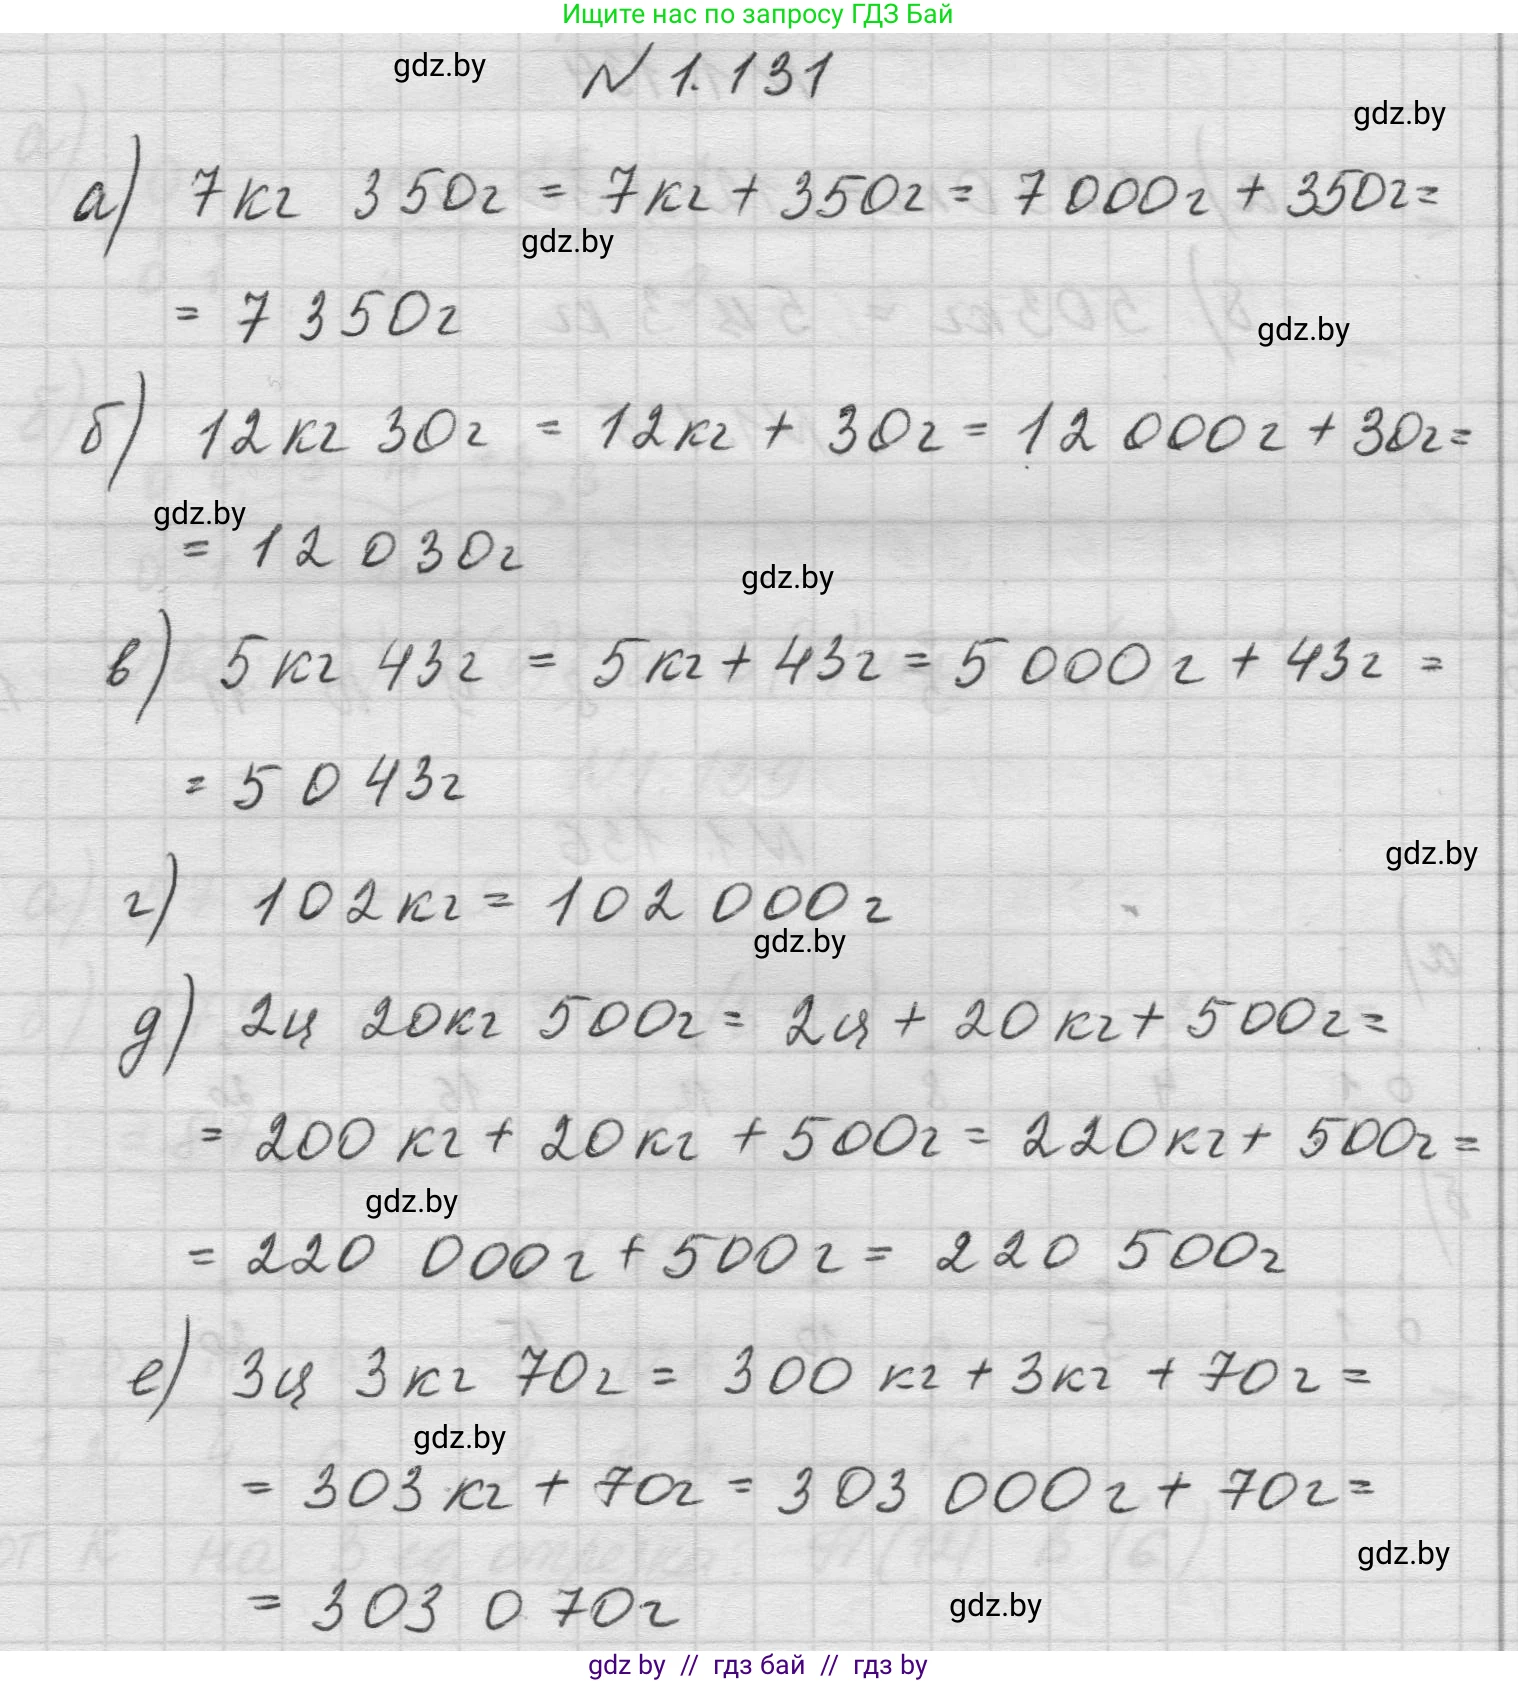 Ищите нас по запросу ГДЗ Бай
gdz.by
№ 1.131
gdz.by
а) 7кг 350г = 7кг + 350г = 7 000г + 350г =
gdz.by
= 7 350г
gdz.by
б) 12кг 30г = 12кг + 30г = 12 000г + 30г =
gdz.by
= 12 030г
gdz.by
в) 5кг 43г = 5кг + 43г = 5 000г + 43г =
= 5 043г
gdz.by
г) 102кг = 102 000г
gdz.by
д) 2ц 20кг 500г = 2ц + 20кг + 500г =
= 200 кг + 20кг + 500г = 220кг + 500г =
gdz.by
= 220 000г + 500г = 220 500г
е) 3ц 3кг 70г = 300 кг + 3кг + 70г =
gdz.by
= 303 кг + 70г = 303 000г + 70г =
gdz.by
= 303 070г
gdz.by
gdz by // гдз бай // гдз by